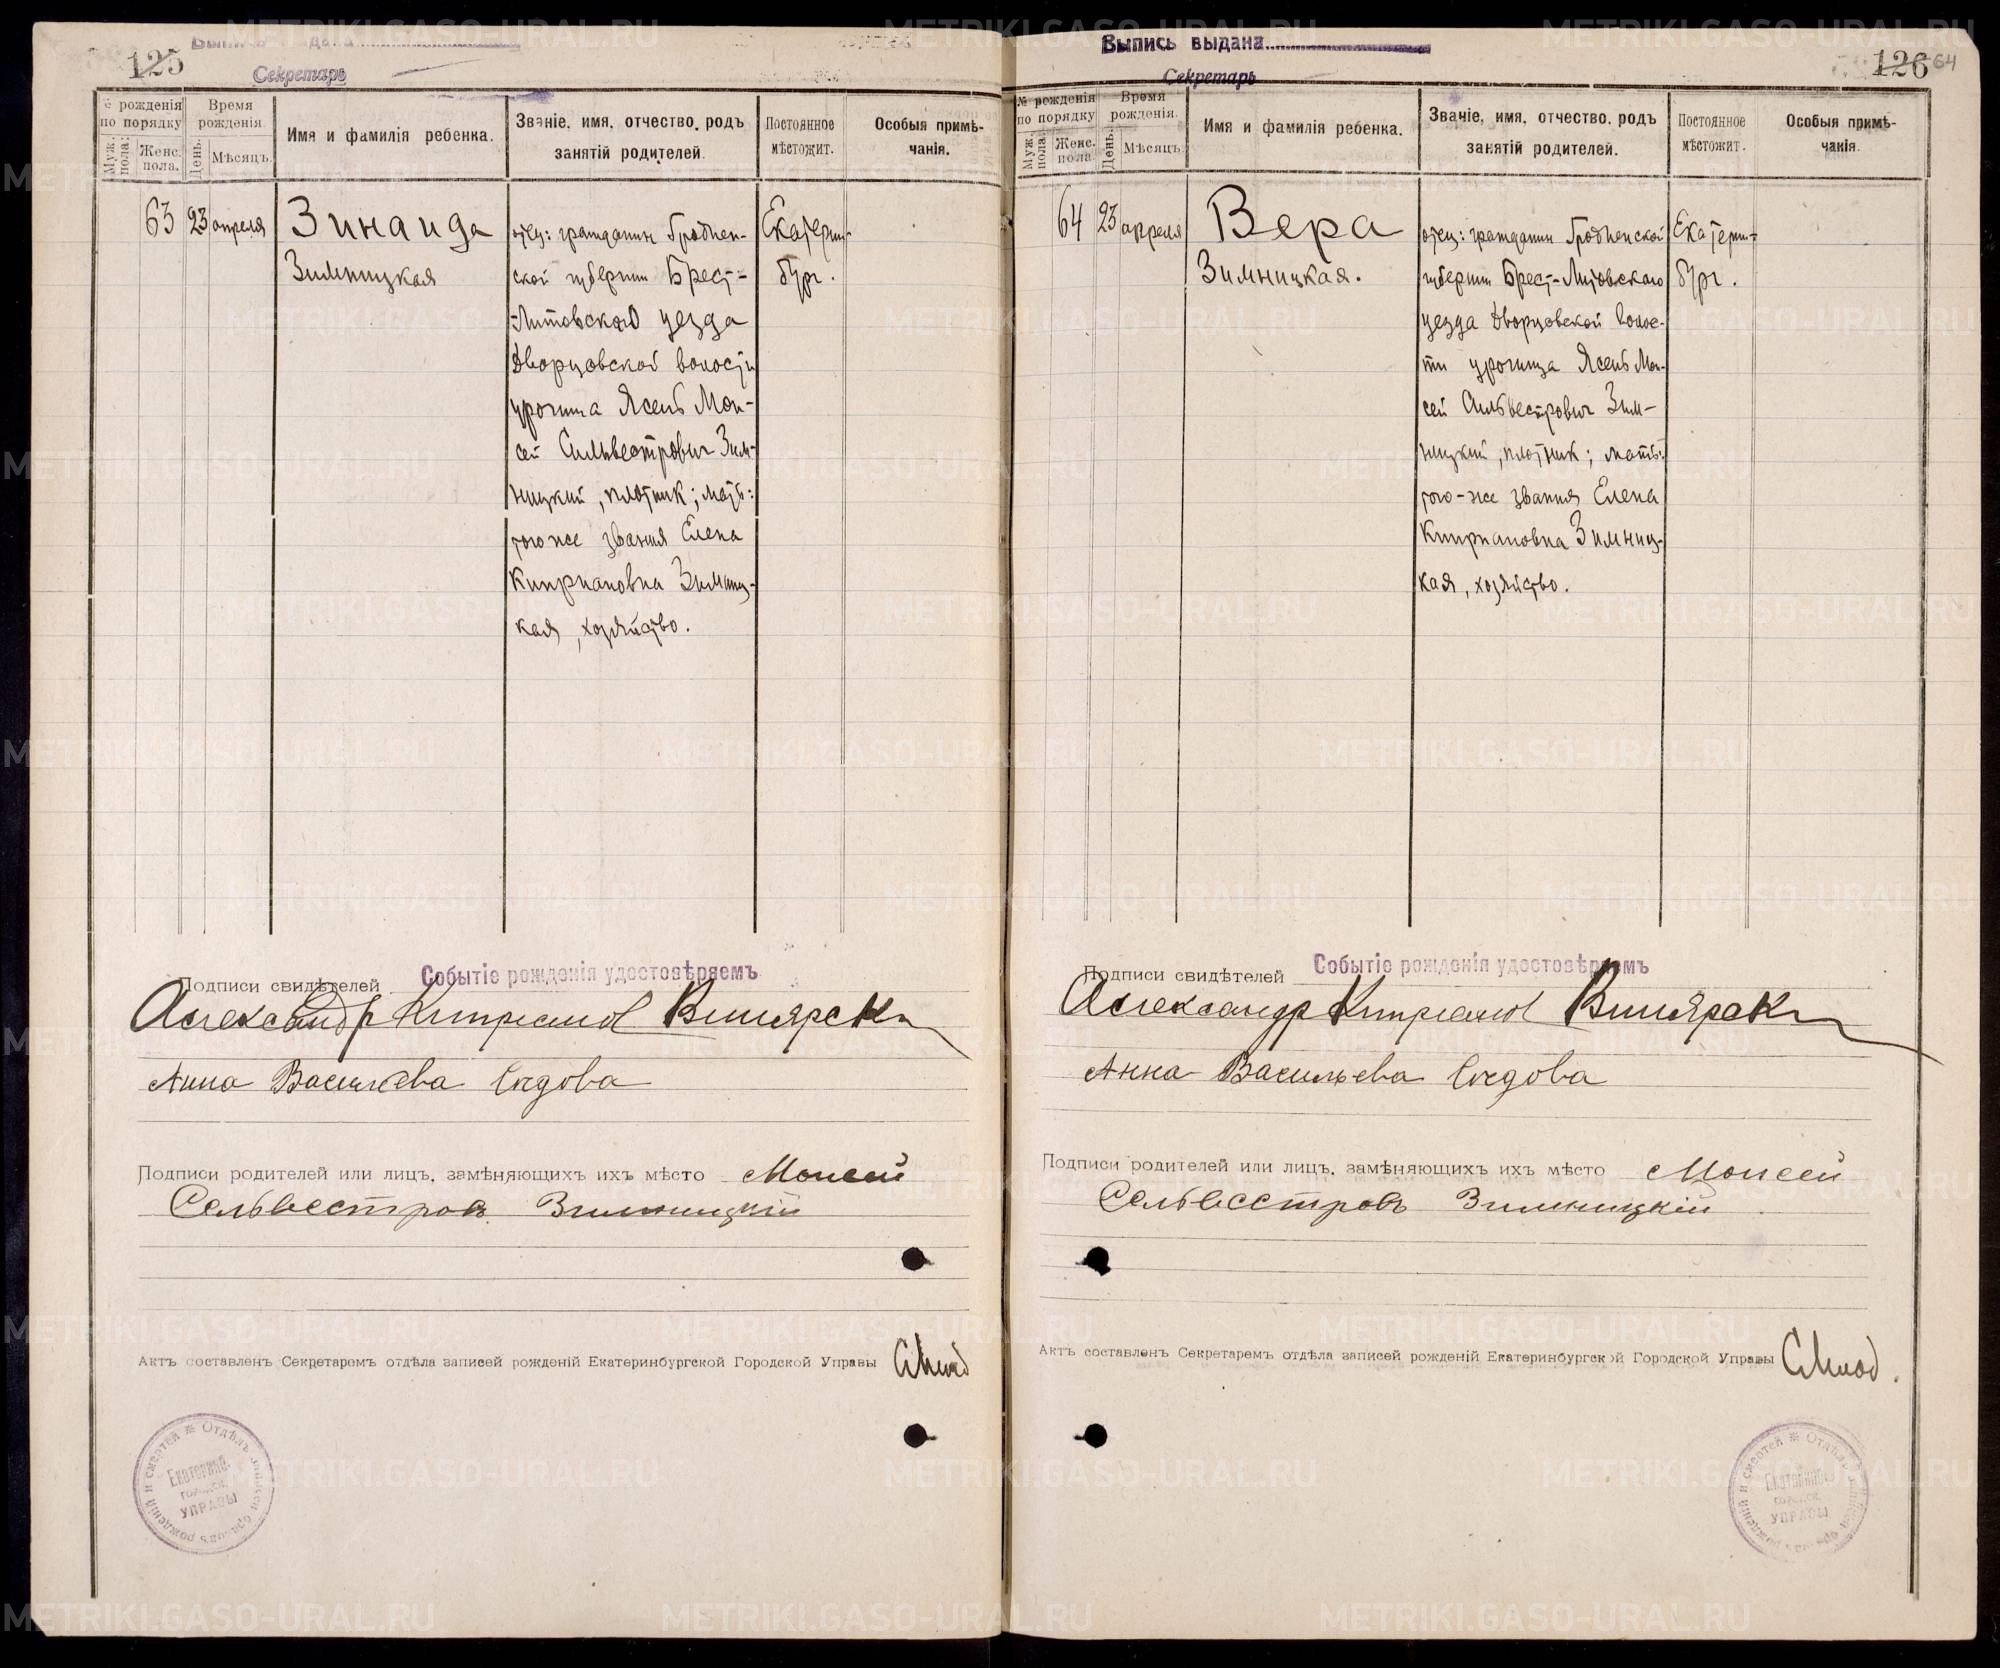 125
Секретарь
№ рожденія по порядку
Муж. пола.
Женс. пола.
Время рожденія.
День.
Мѣсяцъ.
Имя и фамилія ребенка.
Званіе, имя, отчество, родъ
занятій родителей.
Постоянное
мѣстожит.
Особыя примѣ-
чанія.
63 23 апреля
Зинаида
Зимницкая
отец: гражданин Гроднен-
ской губернии Брест-
-Литовского уезда
Дворцовской волости
урочища Ясень Мои-
сей Сильвестрович Зим-
ницкий, плотник; мать:
того же звания Елена
Киприановна Зимниц-
кая, хозяйство.
Екатерин-
бург.
Подписи свидѣтелей
Событіе рожденія удостовѣряемъ
Александр Киприанов
Анна Васильева
Подписи родителей или лицъ, замѣняющихъ ихъ мѣсто Моисей
Сельвестровъ Зимницкій
Актъ составленъ Секретаремъ отдѣла записей рожденій Екатеринбургской Городской Управы
Отдѣлъ записи браковъ рожденій и смертей
Екатеринб.
городск.
УПРАВЫ
Выпись выдана
Секретарь
126
64
№ рожденія по порядку
Муж. пола.
Женс. пола
Время рожденія.
День.
Мѣсяцъ.
Имя и фамилія ребенка.
Званіе, имя, отчество, родъ
занятій родителей.
Постоянное
мѣстожит.
Особыя примѣ-
чанія.
64 23 апреля
Вера
Зимницкая.
отец: гражданин Гродненской
губернии Брест-Литовского
уезда Дворцовской волос-
ти урочища Ясень Мои-
сей Сильвестрович Зим-
ницкий, плотник; мать:
того-же звания Елена
Киприановна Зимниц-
кая, хозяйство.
Екатерин-
бург.
Подписи свидѣтелей
Событіе рожденія удостовѣряемъ
Александр Киприанов
Анна Васильева
Подписи родителей или лицъ, замѣняющихъ ихъ мѣсто Моисей
Сельвесстровъ Зимницкій
Актъ составленъ Секретаремъ отдѣла записей рожденій Екатеринбургской Городской Управы
Отдѣлъ записи браковъ рожденій и смертей
Екатеринб.
городск.
УПРАВЫ
METRIKI.GASO-URAL.RU